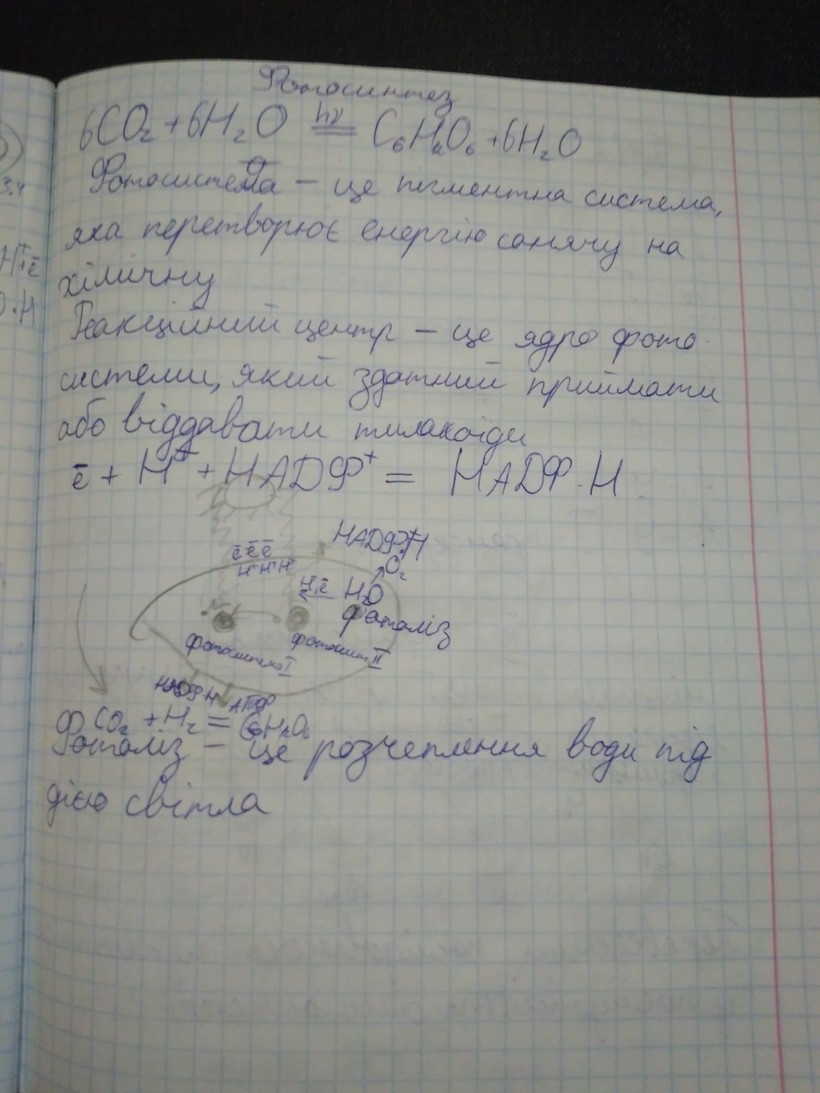 Фотосинтез
6CO₂ + 6H₂O hν = C₆H₁₂O₆ + 6H₂O
Фотосистема – це пігментна система,
яка перетворює енергію сонячу на
хімічну
Реакційний центр – це ядро фото
системи, який здатний приймати
або віддавати тилакоїди
ē + H⁺ + НАДФ⁺ = НАДФ·Н
ē ē ē
H⁺ H⁺ H⁺
НАДФ·Н
O₂
H, ē H₂O
фотоліз
фотосистема I фотосист. II
НАДФ·Н АТФ
CO₂ + H₂ = C₆H₁₂O₆
Фотоліз – це розчеплення води під
дією світла